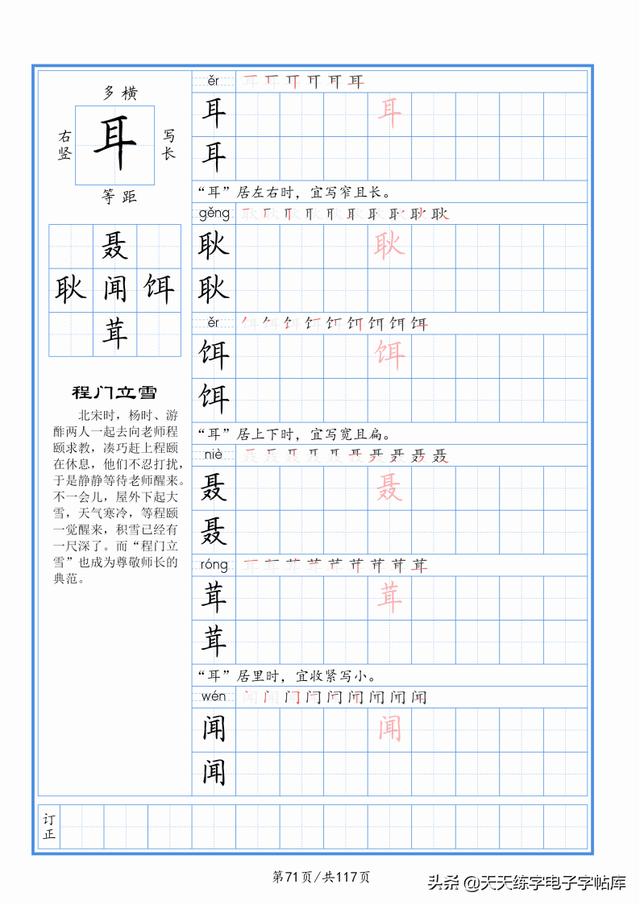 多横
右竖
耳
写长
等距
聂
耿闻饵
茸
程门立雪
北宋时，杨时、游
酢两人一起去向老师程
颐求教，凑巧赶上程颐
在休息，他们不忍打扰，
于是静静等待老师醒来。
不一会儿，屋外下起大
雪，天气寒冷，等程颐
一觉醒来，积雪已经有
一尺深了。而“程门立
雪”也成为尊敬师长的
典范。
ěr
耳 耳
耳
“耳”居左右时，宜写窄且长。
gěng
耿 耿
耿
ěr
饵 饵
饵
“耳”居上下时，宜写宽且扁。
niè
聂 聂
聂
róng
茸 茸
茸
“耳”居里时，宜收紧写小。
wén
闻 闻
闻
订正
第71页/共117页
头条 @天天练字电子字帖库